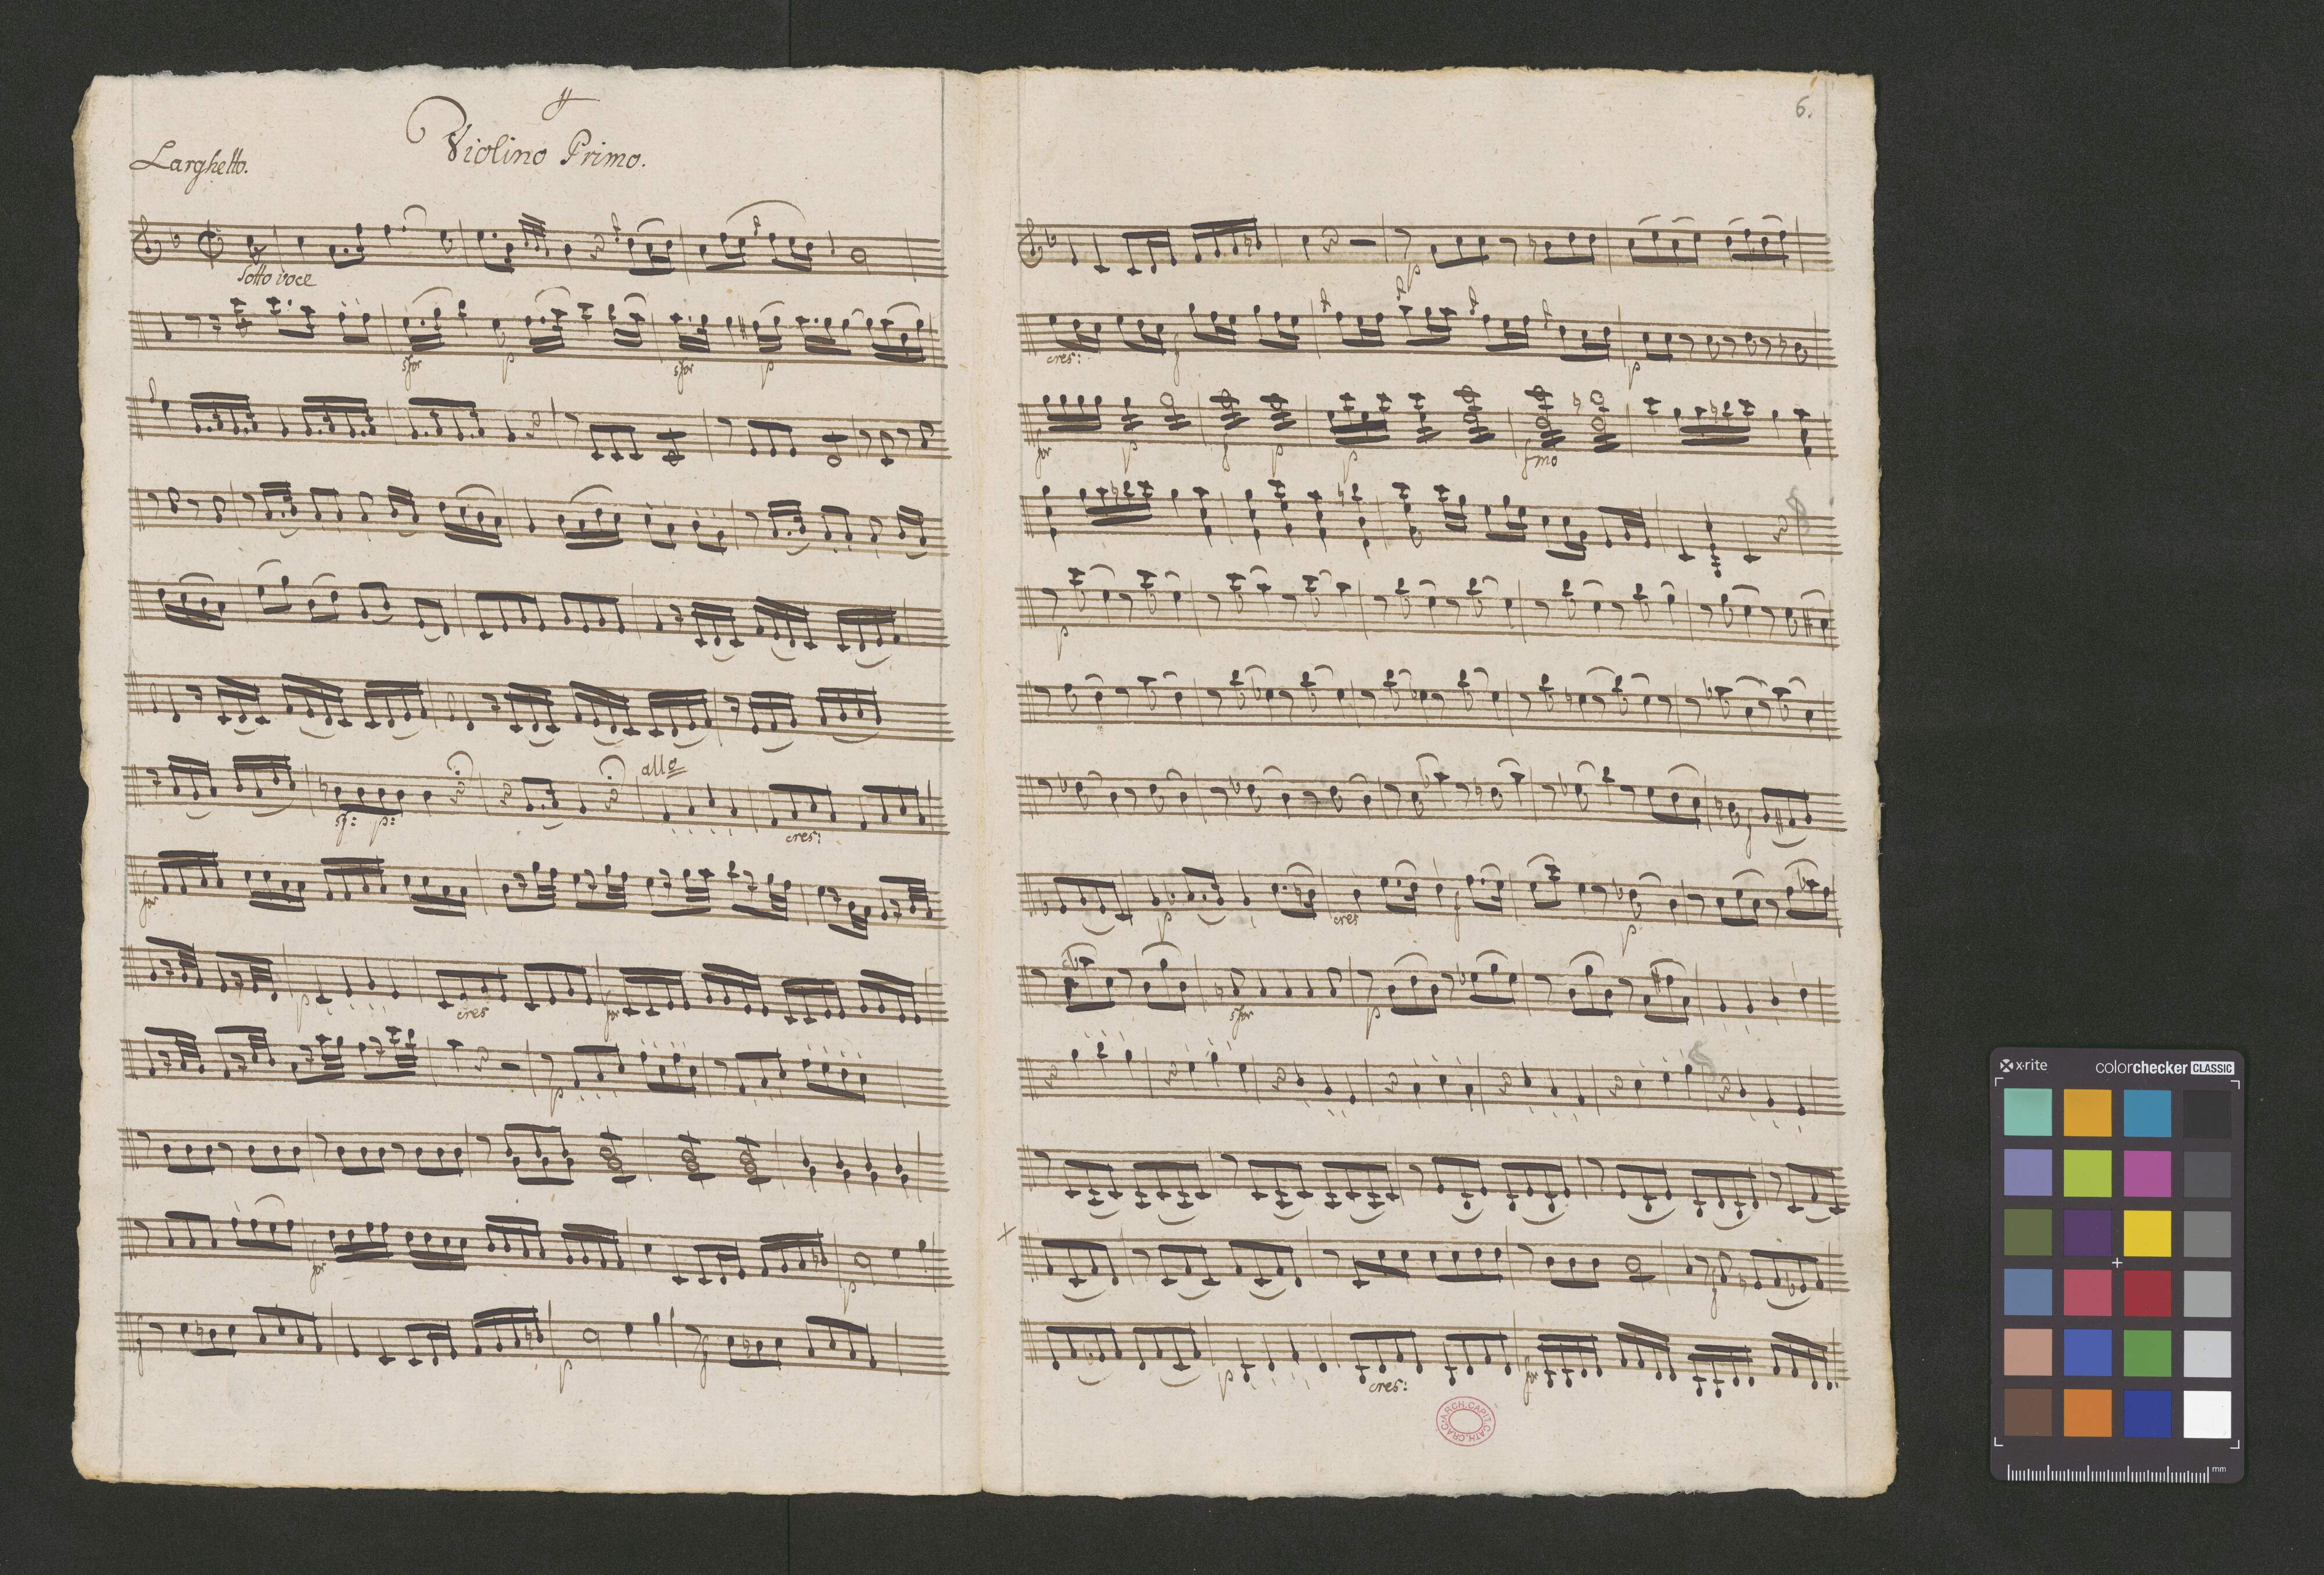 Violino Primo.
Larghetto.
Sotto voce
sfor p sfor p
sf: p:
allo
cres:
for
p cres for
p
for p
f p f
6.
p
cres: f p
for p f p p fmo
p
f
p cres f p
sfor p
f
p cres: for
ARCH. CAPIT. CATH. CRAC.
x-rite
colorchecker CLASSIC
mm